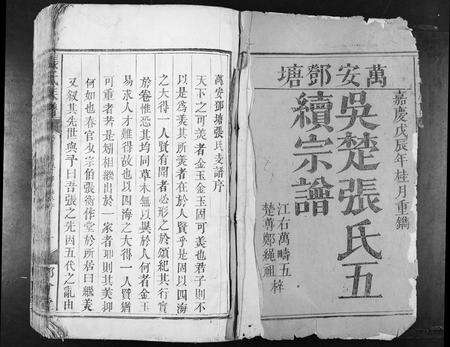 萬安鄧塘
嘉慶戊辰年桂月重鐫
吳楚張氏五
續宗譜
江右萬疇五梓
楚尊鄭繩祖
萬安鄧塘張氏支譜序
天下之可美者金玉金玉固可美也君子則不
以是為美其所美者在於人賢乎是因以四海
之大得一人賢有聞者必形之於頌紀其行實
於卷惟恐其均同草木無以異於人何者金玉
易求人才難得故也以四海之大得一人賢猶
可重者若是矧相繼出於一家者耶則其美抑
何如也春官女宗伯張衡作堂於所居曰繼美
又叙其先世與予曰吾張之先因五代之亂由